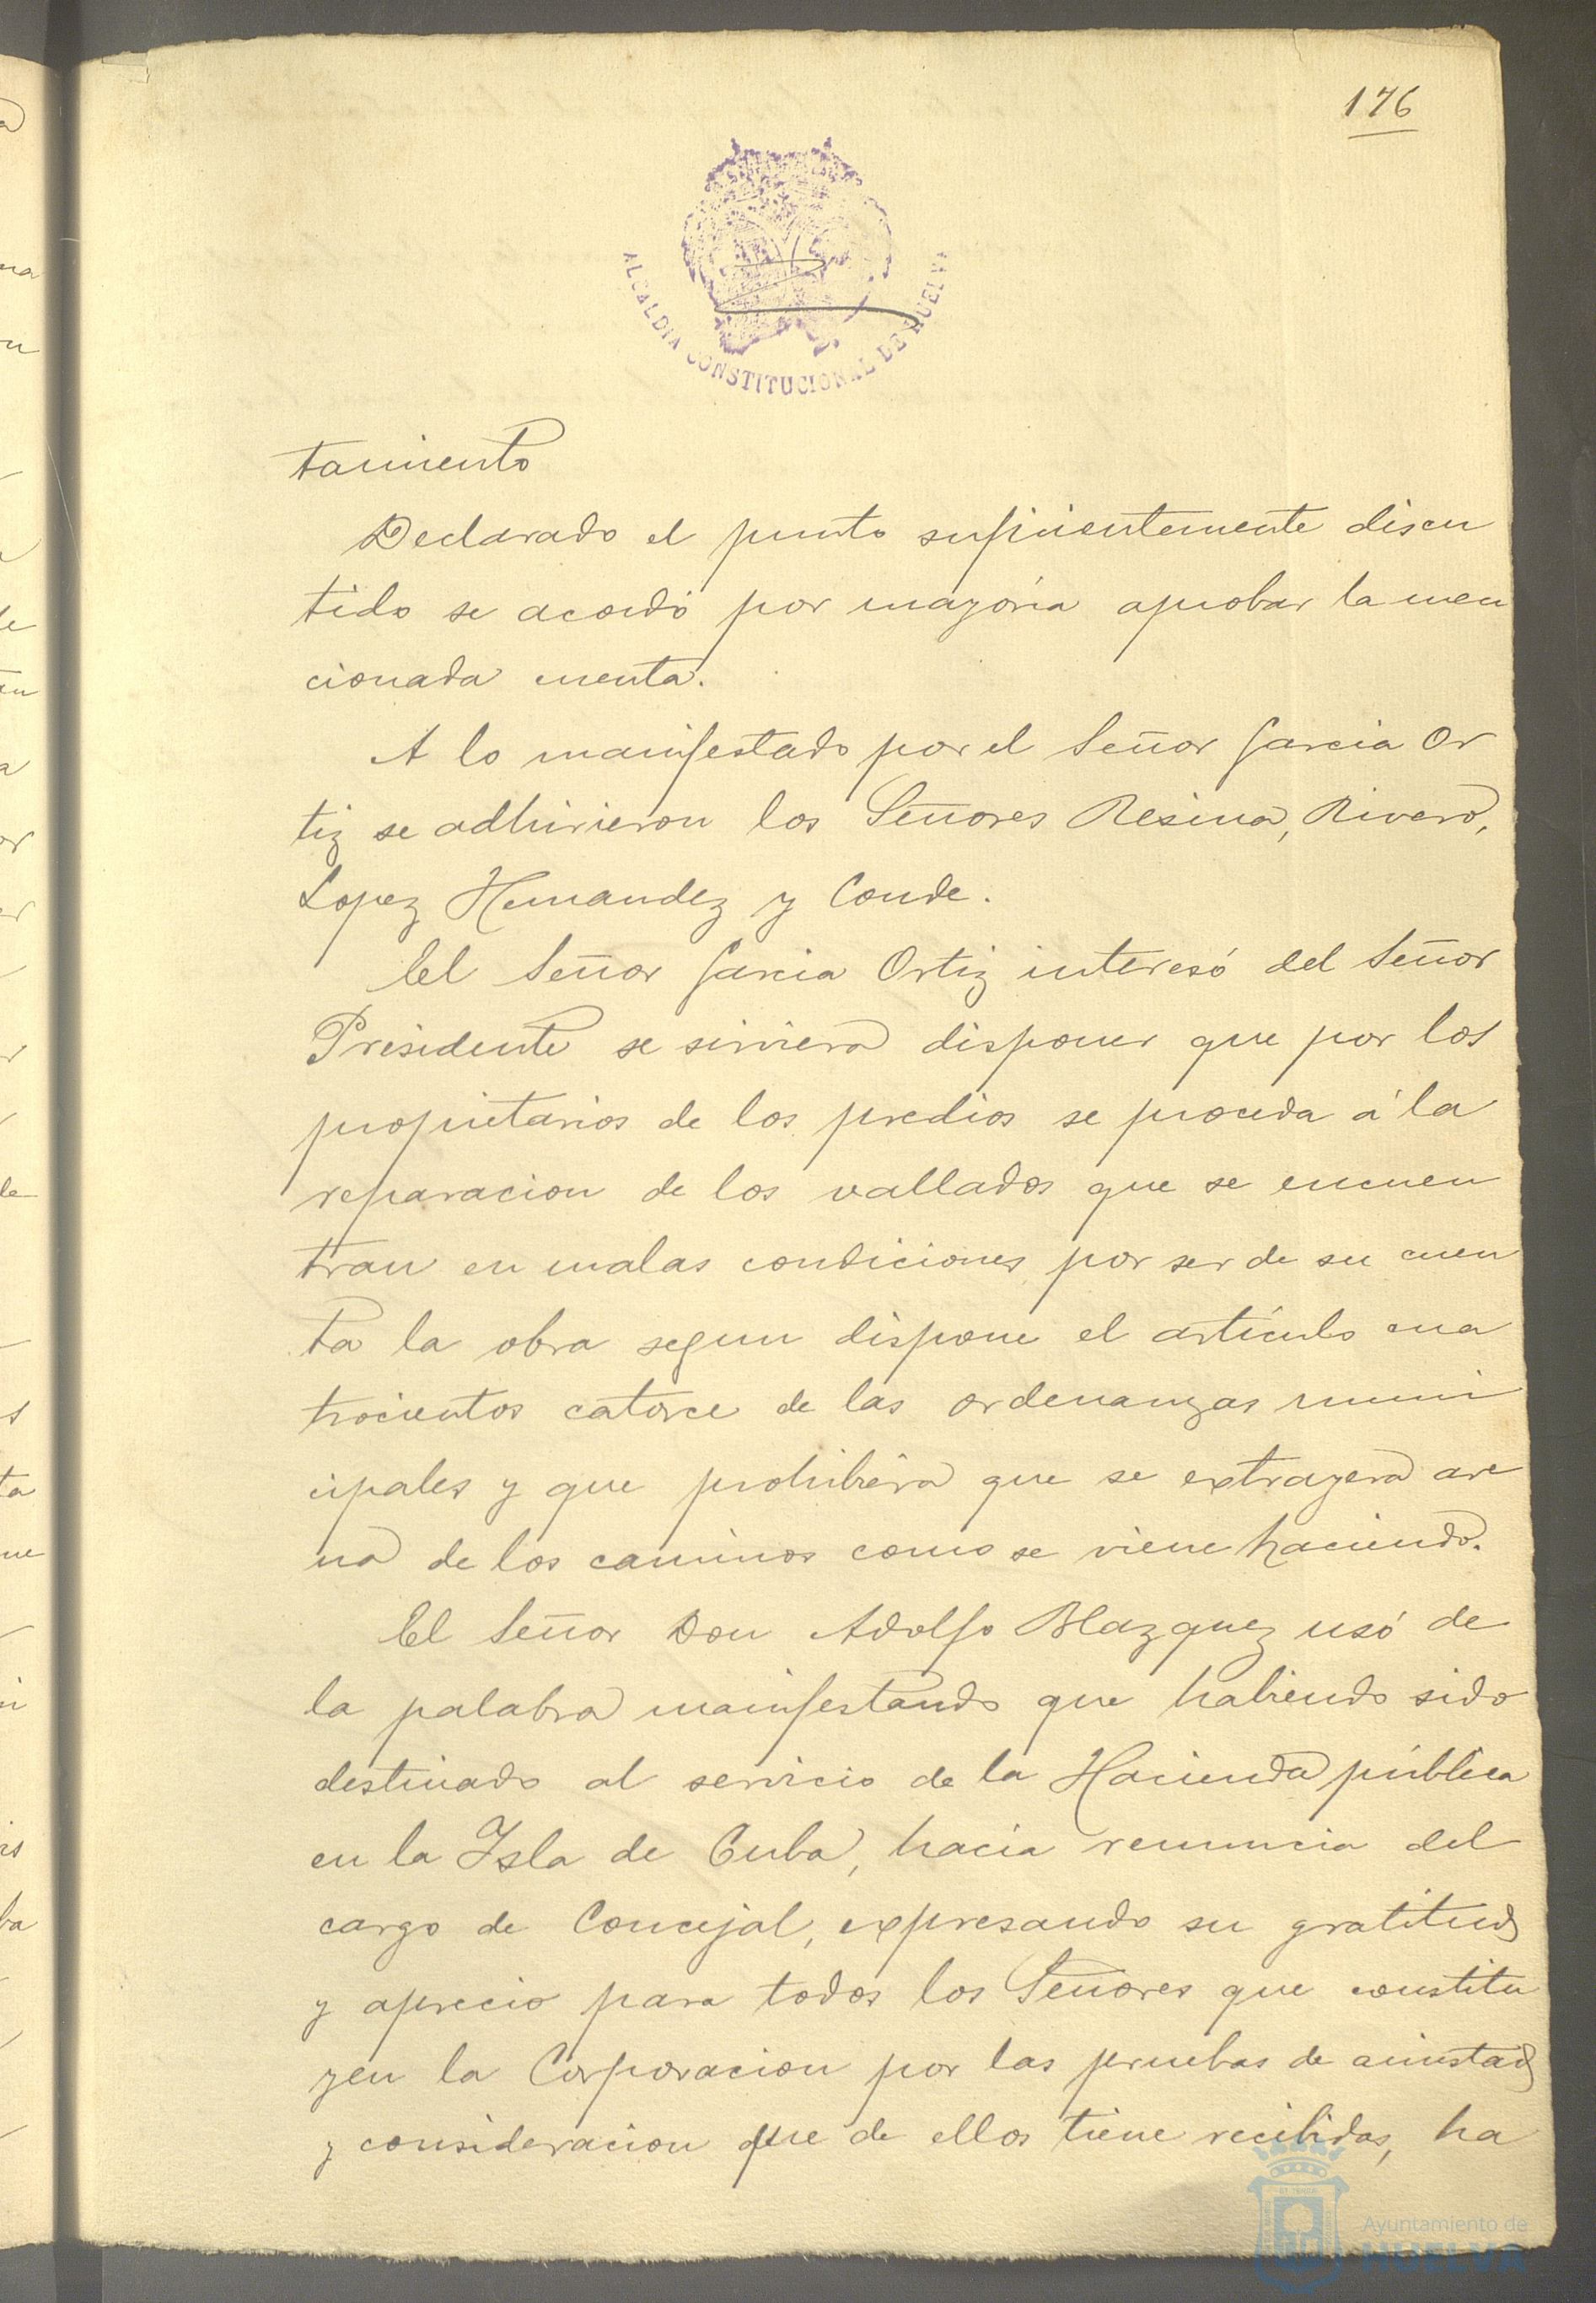 176
ALCALDIA CONSTITUCIONAL DE HUELVA
tamiento
Declarado el punto suficientemente discu
tido se acordó por mayoría aprobar la men
cionada cuenta.
A lo manifestado por el Señor Garcia Or
tiz se adhirieron los Señores Resina, Rivero,
Lopez Hernandez y Conde.
El Señor Garcia Ortiz interesó del Señor
Presidente se sirviera disponer que por los
propietarios de los predios se proceda á la
reparacion de los vallados que se encuen
tran en malas condiciones por ser de su cuen
ta la obra segun dispone el artículo cua
trocientos catorce de las ordenanzas muni
cipales y que prohibiera que se extrayera are
na de los caminos como se viene haciendo.
El Señor Don Adolfo Blazquez usó de
la palabra manifestando que habiendo sido
destinado al servicio de la Hacienda pública
en la Isla de Cuba, hacía renuncia del
cargo de Concejal, expresando su gratitud
y aprecio para todos los Señores que constitu
yen la Corporacion por las pruebas de amistad
y consideracion que de ellos tiene recibidas, ha
Ayuntamiento de
HUELVA